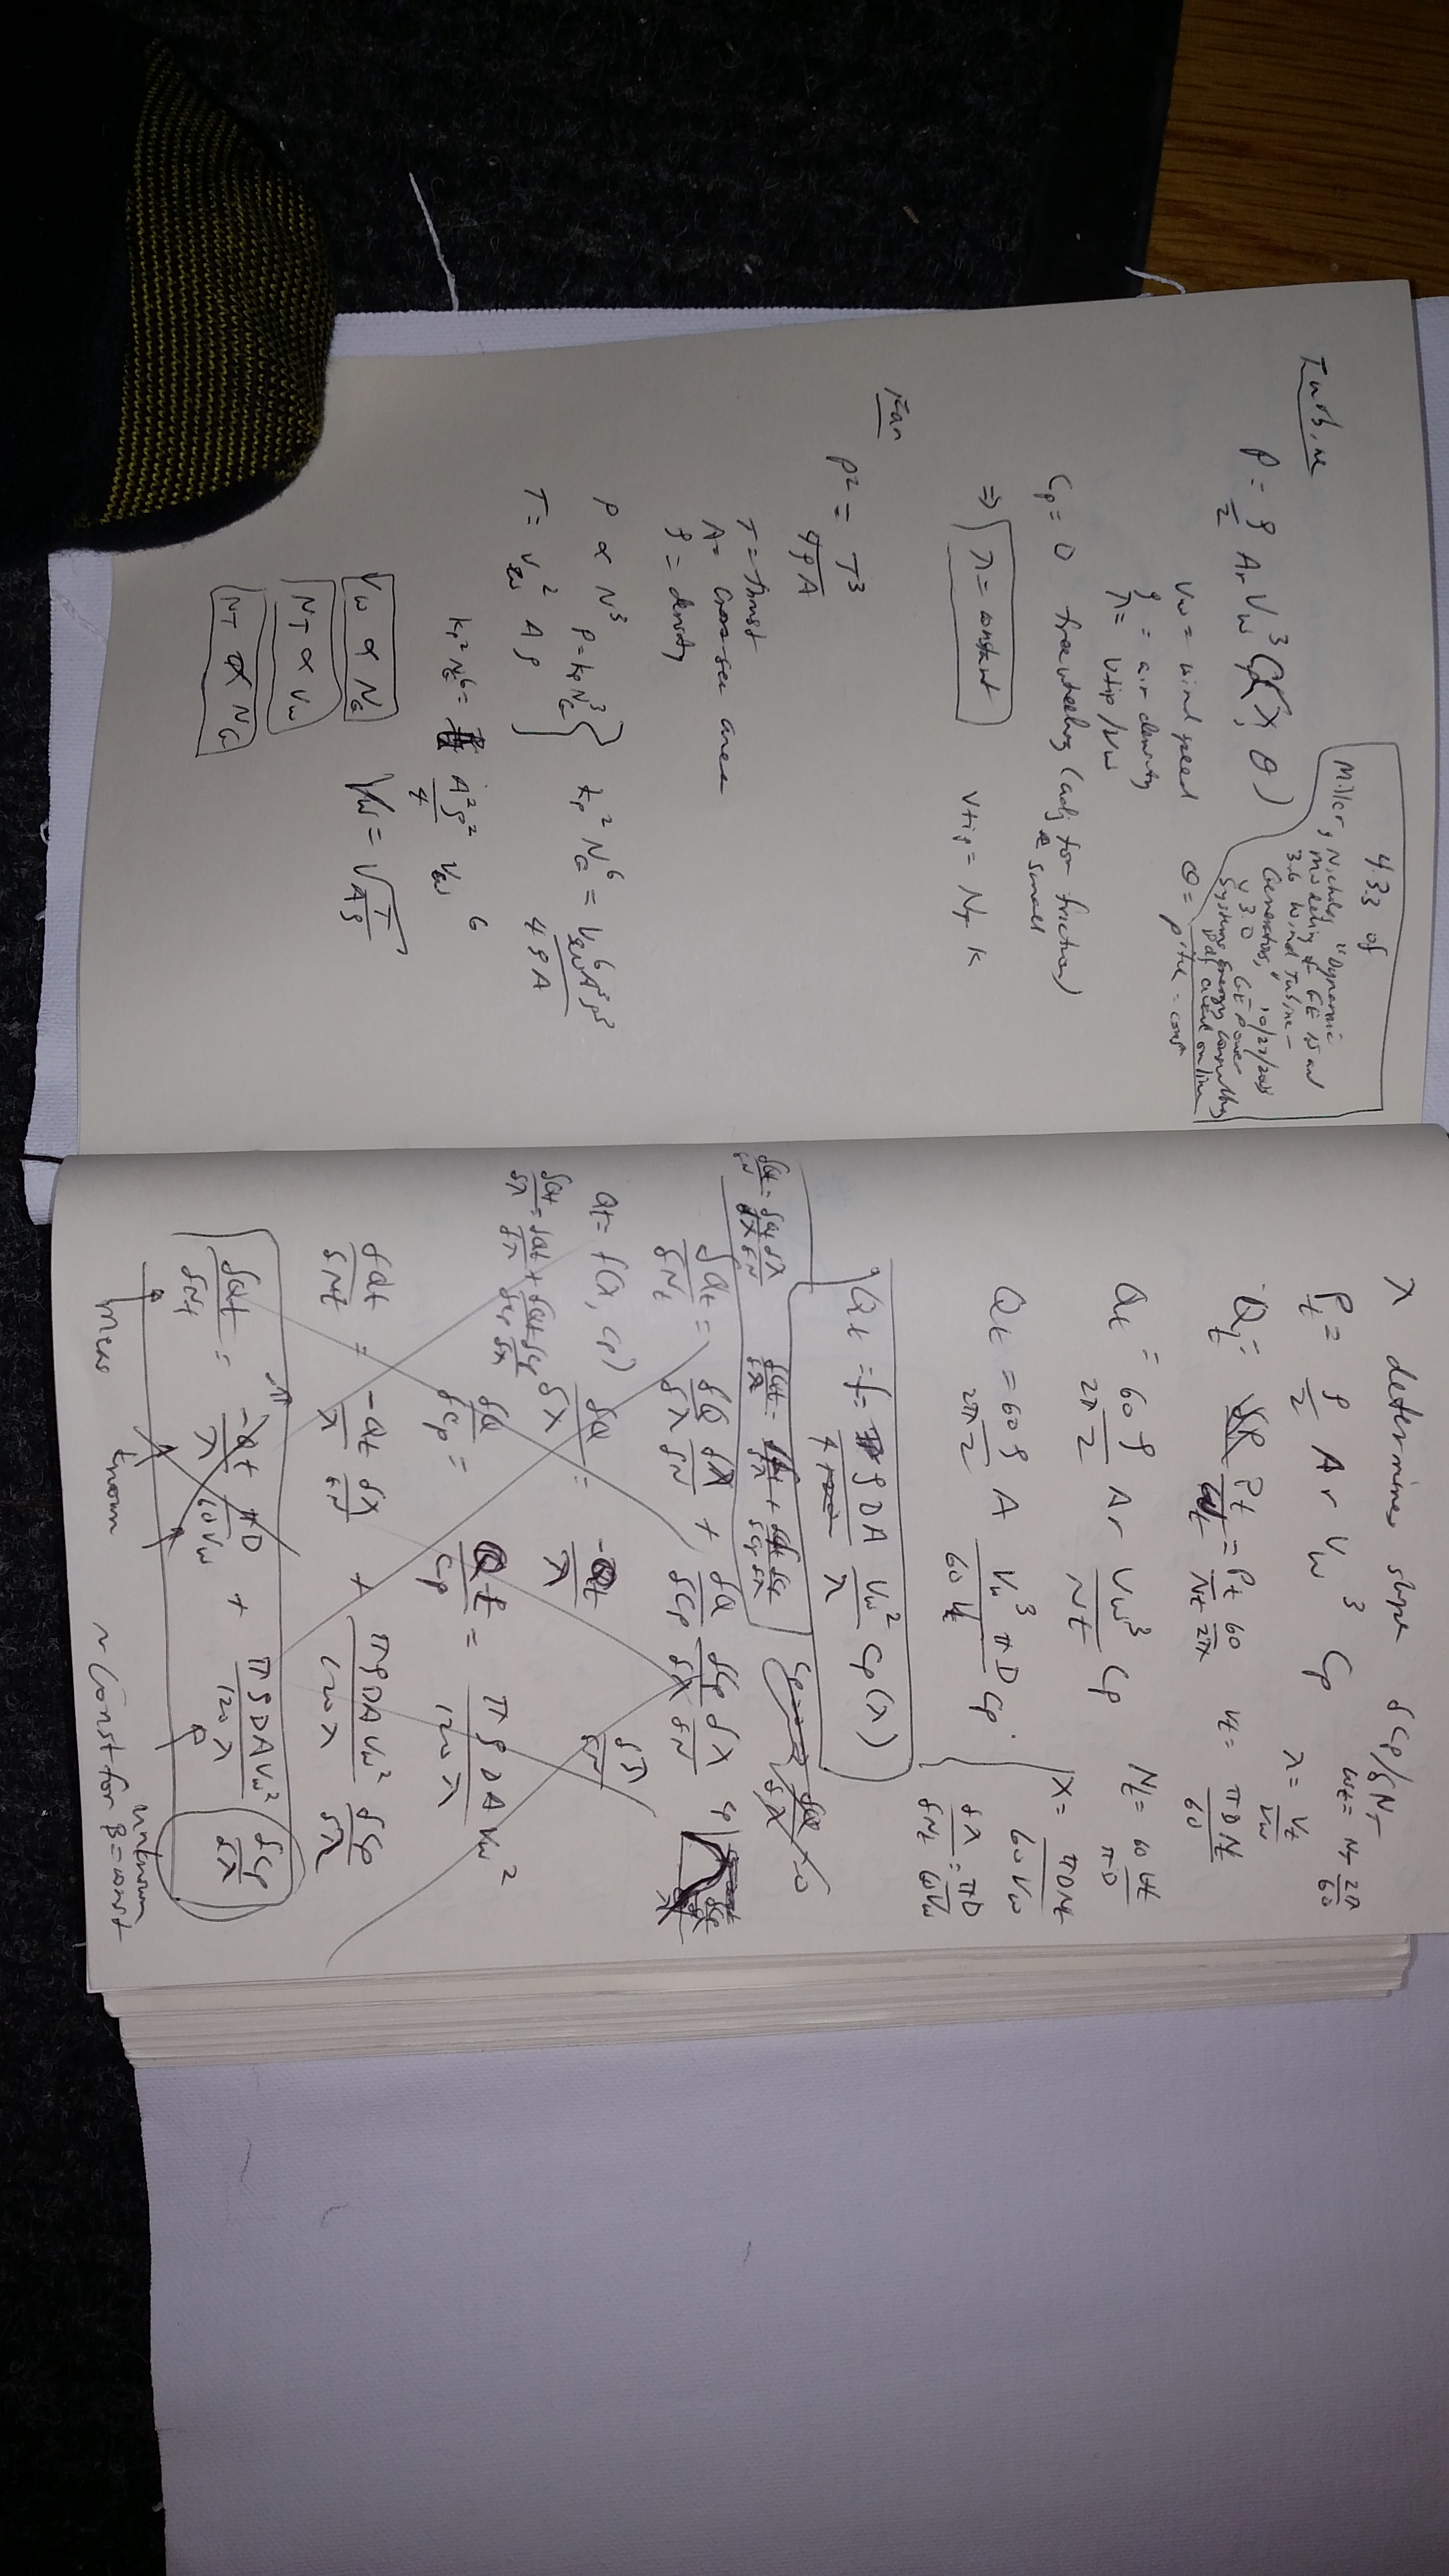 4.3.3 of
Miller, Nicholas "Dynamic
Modeling of GE 1.5 and
3.6 Wind Turbine-
Generators," 10/27/2003
v 3.0 GE Power
Systems Energy Consulting
Pdf avail online
Turbine
P = ρ/2 Ar Vw³ Cp(λ, θ)
Vw = wind speed
θ = pitch = const
ρ = air density
λ = Vtip/Vw
Cp = 0 freewheeling (adj for friction)
small
⇒ λ = constant
Vtip = N_T K
Fan
P² = T³/4ρA
T = thrust
A = cross-sec area
ρ = density
P ∝ N³
P = kp N_G³
T = Vw² A ρ
kp² N_G⁶ = Vw⁶A³ρ³/4ρA
kp² N_G⁶ = A²ρ²/4 Vw⁶
Vw ∝ N_G
Vw = √(T/Aρ)
N_T ∝ Vw
N_T ∝ N_G
λ determines slope δCp/δN_T
Pt = ρ/2 Ar Vw³ Cp
ωt = N_T 2π/60
λ = Vt/Vw
Qt = Pt/ωt = Pt/Nt 60/2π
Vt = πDNt/60
Qt = 60/2π ρ/2 Ar Vw³/Nt Cp
Nt = 60 Vt/πD
λ = πDNt/60Vw
Qt = 60/2π ρ/2 A Vw³ πD/60 Vt Cp
δλ/δNt = πD/60Vw
Qt = f = ρDA/4 Vw²/λ Cp(λ)
Cp=0 ⇒ δQ/δλ = 0
δQt/δN = δQt/δλ δλ/δN
δQt/δλ = δQt/δλ + δQt/δCp δCp/δλ
δQt/δNt = δQ/δλ δλ/δN + δQ/δCp δCp/δλ δλ/δN
Cp
λ
Qt = f(λ, Cp)
δQ/δλ = -Qt/λ
δλ/δN
δQt/δλ = δQt/δλ + δQt/δCp δCp/δλ
δQ/δCp = Qt/Cp = πρDAVw²/120λ
δQt/δNt = -Qt/λ δλ/δN + πρDAVw²/120λ δCp/δλ
δQt/δNt = -Qt/λ πD/60Vw + πρDAVw²/120λ δCp/δλ
meas
known
unknown
~ const for β=const